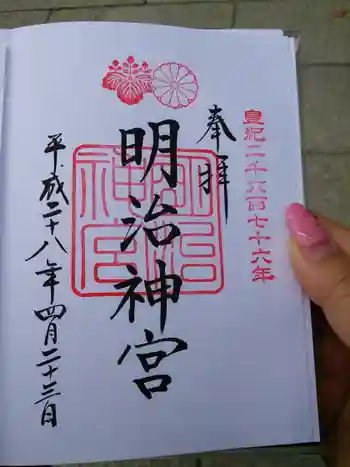 皇紀二千六百七十六年
奉拝
明治神宮
明治神宮
平成二十八年四月二十三日